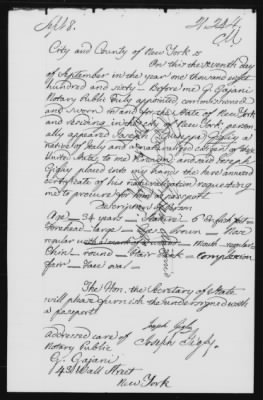 Sept 8.
City and County of New York ss
On this the seventh day
of September in the year one thousand eight
hundred and sixty — Before me G. Gajani
Notary Public duly appointed, commissioned
and sworn in and for the State of New York
and residing in City of New York person-
ally appeared Joseph (Giuseppe) a
native of Italy and a naturalized citizen of the
United States, to me known and said Joseph
put into my hands the here annexed
certificate of his naturalization requesting
me to procure for him a passport
Description of Person
Age — 34 years — Stature 5 feet
Forehead — large — Eyes — brown — Nose
regular — Mouth — regular
Chin — round — Hair — black — Complexion
fair — Face oval —
The Hon. the Secretary of State
will please furnish the undersigned with
a passport
Joseph
addressed care of Joseph
Notary Public
G. Gajani
Wall Street
New York